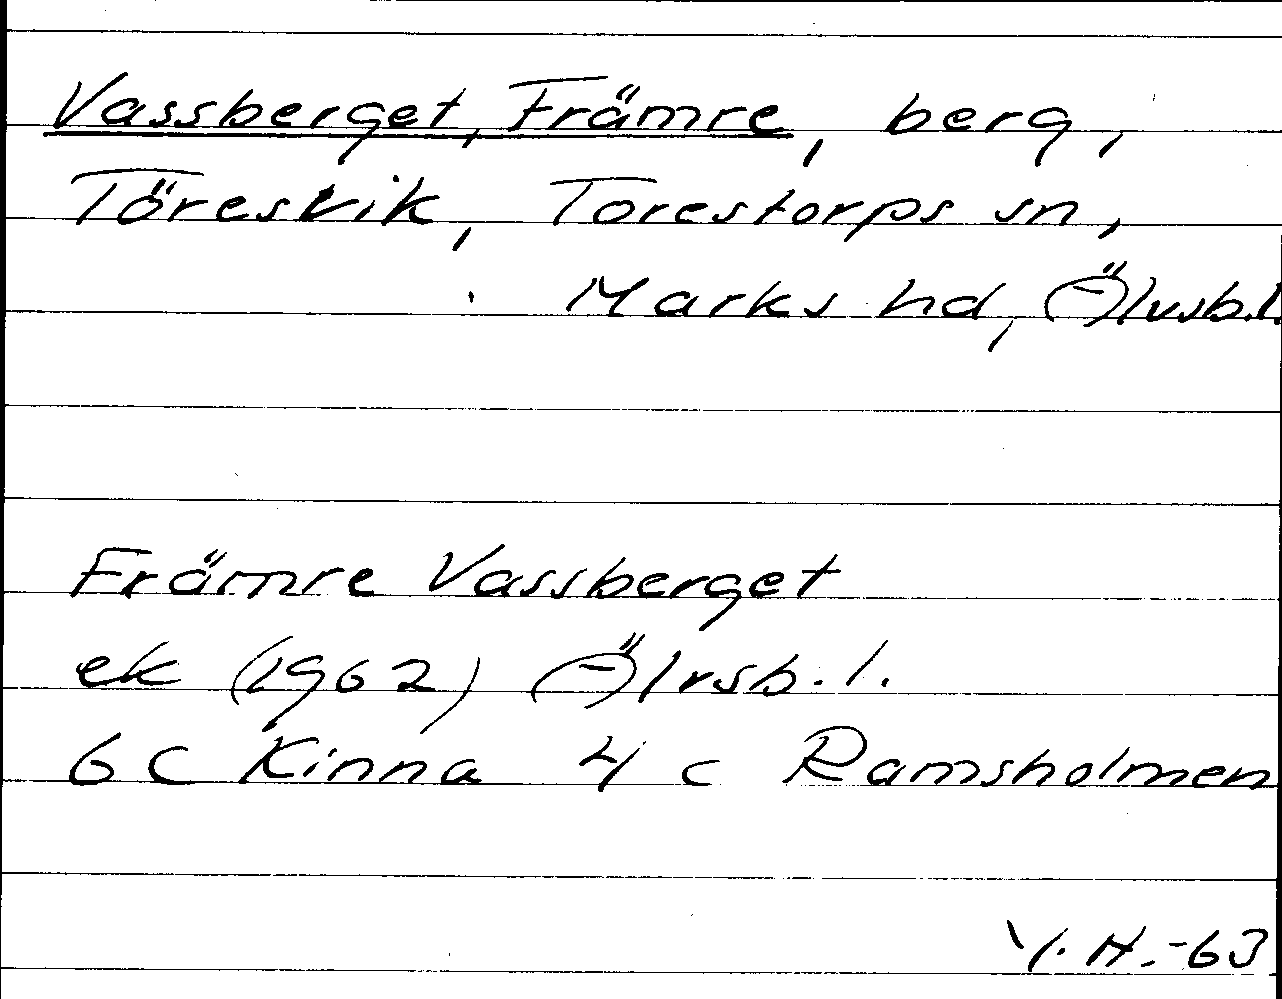 Vassberget, Främre, berg,
Töresvik, Torestorps sn,
Marks hd, Älvsb.l.
Främre Vassberget
ek (1962) Älvsb.l.
6 C Kinna 4 c Ramsholmen
Y.H.-63